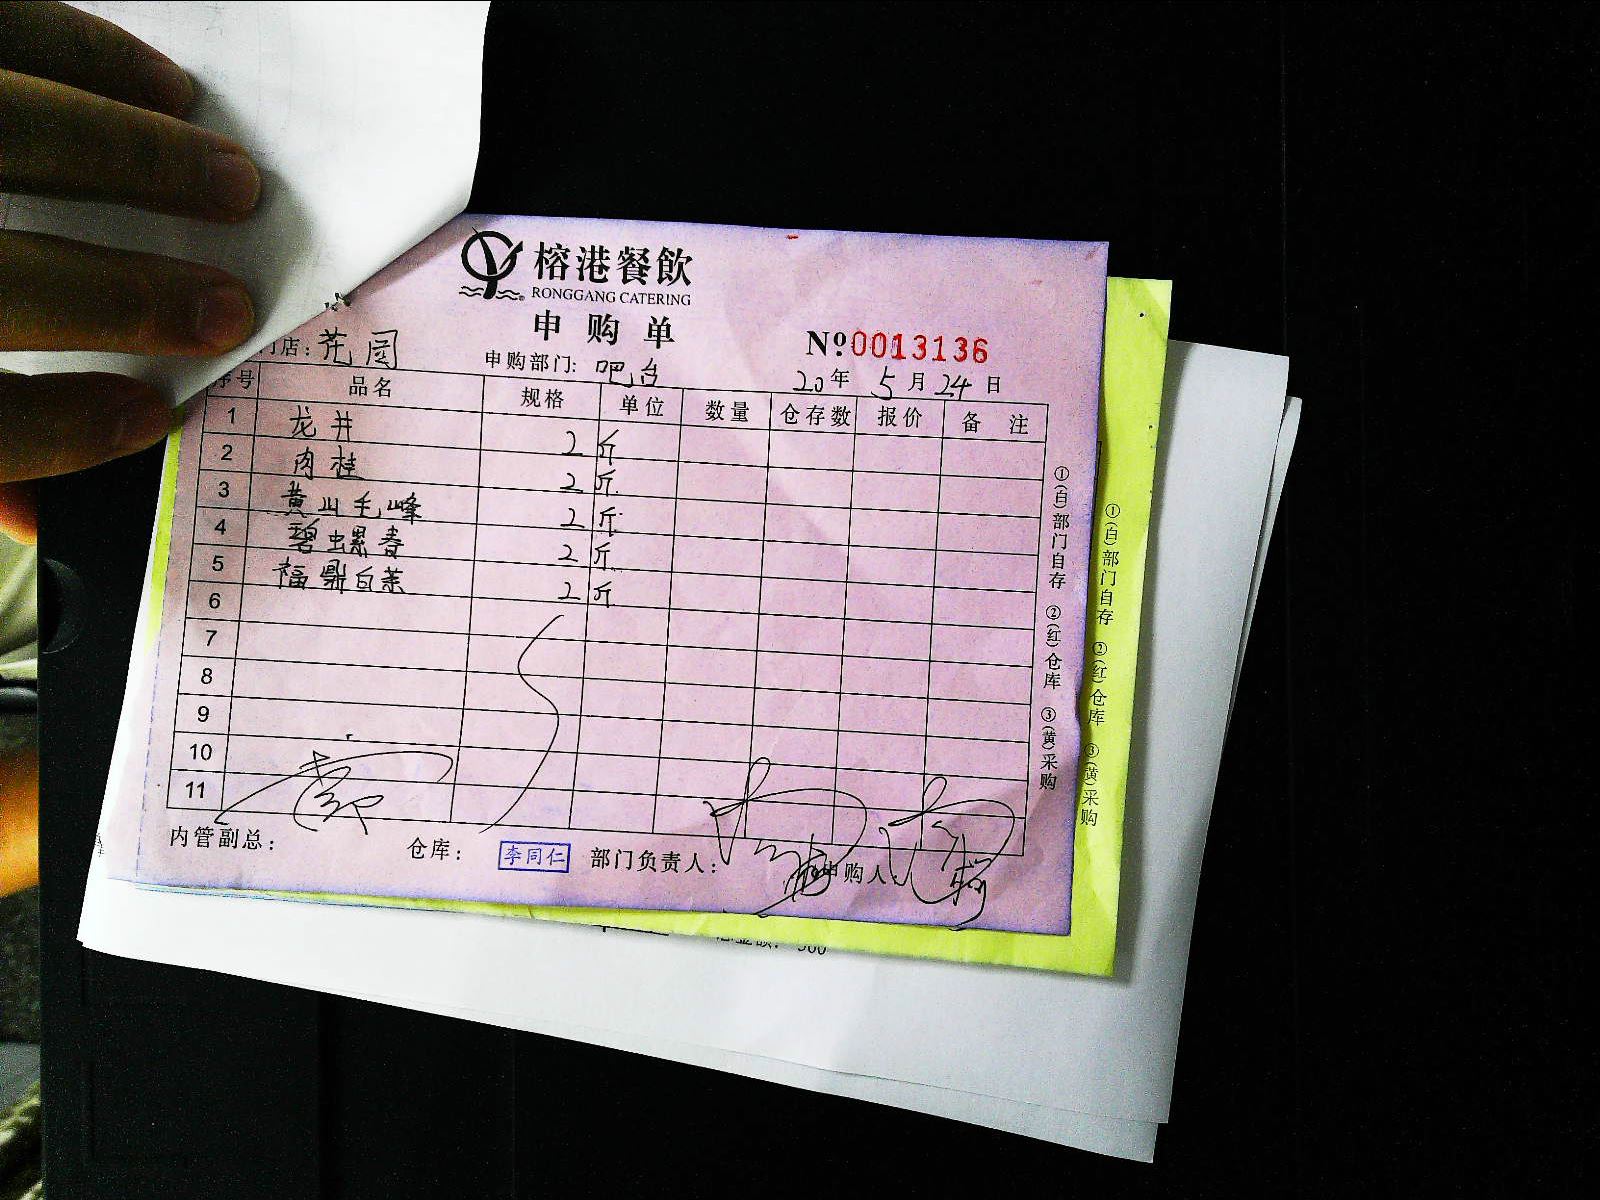 榕港餐飲
RONGGANG CATERING
申购单
№0013136
门店：花园 申购部门：吧台 20年5月24日
序号 品名 规格 单位 数量 仓存数 报价 备注
1 龙井 2 斤
2 肉桂 2 斤
3 黄山毛峰 2 斤
4 碧螺春 2 斤
5 福鼎白茶 2 斤
6
7
8
9
10
11
内管副总： 仓库： 李同仁 部门负责人： 申购人：
①(白)部门自存 ②(红)仓库 ③(黄)采购
①(白)部门自存 ②(红)仓库 ③(黄)采购